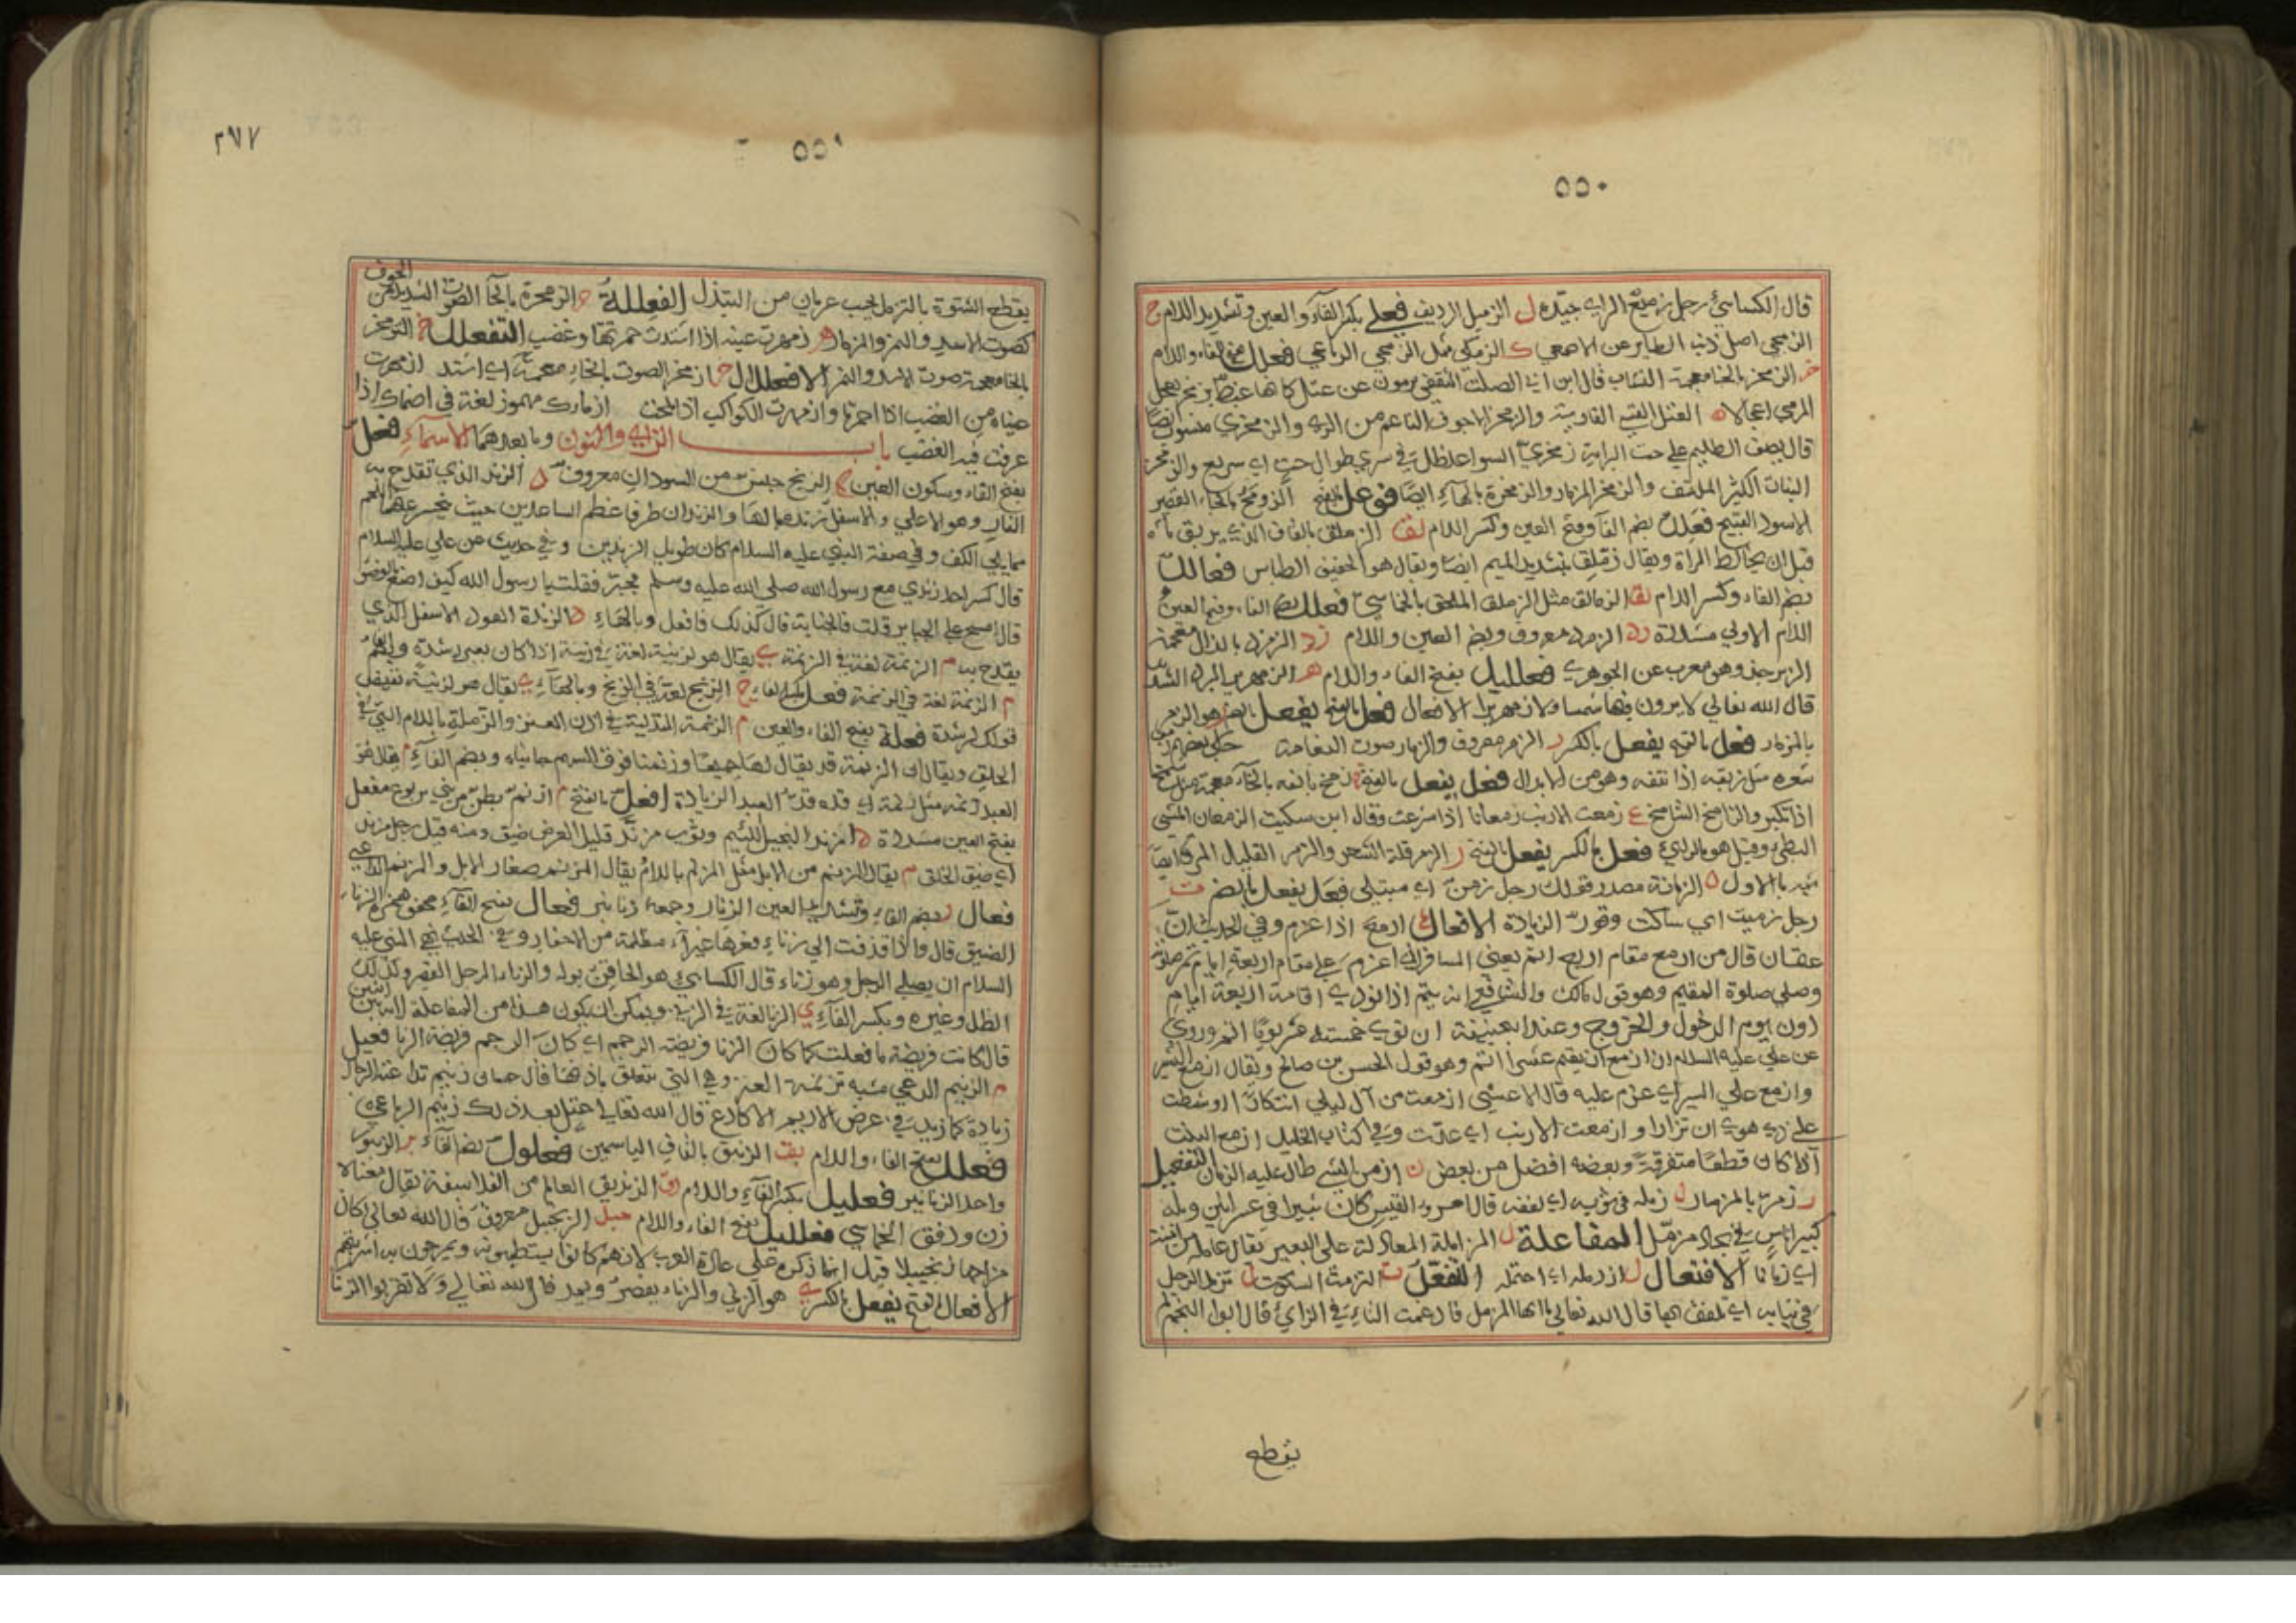 ٥٥٠
قال الكسائي رجل زميع الراي جيده ل الزميل الرديف فعلي بكسر الفآء والعين وتشديد اللام ج
الزمجي اصل ذنب الطاير عن الاصمعي ك الزمكي مثل الزمجي الرباعي فعلل بفتح الفاء واللام
خر الزمخر بالخا معجمة النشاب قال ابن ابي الصلت الثقفي يرمون عن عتل كانها غبط بزمخر يعجل
المرمي اعجالا العتل القسي الفارسية والزمخر الاجوف الناعم من الري والزمخري منسوب ايضا
قال يصف الظليم على حت البراية زمخري السواعد ظل في شري طوال حت اي سريع والزمخر
النبات الكثير الملتف والزمخر المزمار والزمخرة بالهآء ايضا فوعل بالفتح الزومح بالحاء القصير
الاسود القبيح فعلل بضم الفآ وفتح العين وكسر اللام لق الزملق بالقاف الذي يريق مآه
قبل ان يخالط المراة ويقال زملق بتشديد الميم ايضا ويقال هو الخفيف الطايش فعالل
بضم الفاء وكسر اللام لق الزمالق مثل الزملق الملحق بالخماسي فعلل بضم الفاء وضم العين
اللام الاولي مشددة رد الزمرد معروف وبضم العين واللام رذ الزمرذ بالذال معجمة
الزبرجد وهو معرب عن الجوهري فعلليل بفتح الفاء واللام هر الزمهرير البرد الشديد
قال الله تعالي لا يرون فيها شمسا ولا زمهريرا الافعال فعل بالفتح يفعل بالضم ر هو الزمر
بالمزمار فعل بالفتح يفعل بالكسر ر الزمر معروف والزمار صوت النعامة حكي بعضهم زمق
شعره مثل زبقه اذا نتفه وهو من الابدال فعل يفعل بالفتح خ زمخ بانفه بالخآء معجمة مثل شمخ
اذا تكبر والزامخ الشامخ ع زمعت الارنب زمعانا اذا اسرعت وقال ابن سكيت الزمعان المشي
البطي وقيل هو بالراي فعل بالكسر يفعل بالفتح ر الزمر قلة الشعر والزمر القليل المروة ايضا
شبه بالاول ن الزمانة مصدر قولك رجل زمن اي مبتلي فعل يفعل بالضم ت
رجل زميت اي ساكت وقور الزيادة الافعال ع ازمع اذا عزم وفي الحديث ان
عثمان قال من ازمع مقام اربع اتم يعني المسافر اذا عزم علي مقام اربعة ايام تم صلوته
وصلي صلوة المقيم وهو قول مالك والشافعي انه يتم اذا نوي اقامة اربعة ايام
دون يوم الدخول والخروج وعند ابي حنيفة ان نوي خمسة عشر يوما اتم وروي
عن علي عليه السلام ان ازمع ان يقيم عشرا اتم وهو قول الحسن بن صالح ويقال ازمع السير
وازمع علي السير اي عزم عليه قال الاعشي ازمعت من آل ليلي ابتكارا وشطت
علي ذي هوي ان تزارا وازمعت الارنب اي عدت وفي كتاب الخليل ازمع النبت
اذا كان قطعا متفرقة وبعضه افضل من بعض ن ازمن الشي طال عليه الزمان التفعيل
ر زمر بالمزمار ل زمله في ثوبه اي لففه قال امرؤ القيس كان ثبيرا في عرانين وبله
كبير اناس في بجاد مزمل المفاعلة ل المزاملة المعادلة علي البعير يقال عامله من امنة
اي زمانا الافتعال ل ازدمله اي احتمله التفعل ت التزمت السكوت ل تزمل الرجل
في ثيابه اي تلفف بها قال الله تعالي يا ايها المزمل فادغمت التاء في الزاي قال ابو النجم
يقطع
٢٧٧
٥٥١
يقطع الشتوة بالتزمل يجب عريان من التبذل الفعللة خر الزمخرة بالخآ الصوت الشديد من
الجوف
كصوت الاسد والنمر والمزمار هر زمهرت عينه اذا اشتدت حمرتها وغضب التفعلل خ التزمخر
بالخا معجمة صوت الاسد والنمر الافعلال خر ازمخر الصوت بالخاء معجمة اي اشتد ازمهرت
عيناه من الغضب اذا احمرتا وازمهرت الكواكب اذا لمحت ازمارك مهموز لغة في اصمأك اذا
عرفت فيه الغضب باب الزاي والنون وما بعدهما الاسمآء فعل
بفتح الفاء وسكون العين ج الزنج جنس من السودان معروف د الزند الذي تقدح به
النار وهو الاعلي والاسفل زندة بالهآء والزندان طرفا عظم الساعدين حيث ينحسر عنهما اللحم
مما يلي الكف وفي صفة النبي عليه السلام كان طويل الزندين وفي حديث عن علي عليه السلام
قال كسر احد زندي مع رسول الله صلى الله عليه وسلم فجبر فقلت يا رسول الله كيف اصنع بالوضوء
قال امسح علي الجباير قلت فالجنابة قال كذلك فافعل وبالهآء د الزندة العود الاسفل الذي
يقدح به م الزنمة لغة في الزنمة ي يقال هو لزنية لغة في زنية اذا كان بغير رشدة وبضم الفاء
م الزنمة لغة في الزنمة فعل بكسر الفاء ج الزنج لغة في الزنج وبالهآء ي يقال هو لزنية نقيض
قولك لرشدة فعلة بفتح الفاء والعين م الزنمة المتدلية في اذن العنز والزملة باللام التي في
الحلق ويقال ان الزنمة قد يقال لهما جميعا وزنمتا فوق السهم جانباه وبضم الفآء م يقال هو
العبد زنمه مثل زلمة اي قده قد العبد الزيادة افعل بالفتح م ازنم بطن من بني يربوع مفعل
بفتح العين مشددة د المزند البخيل اللئيم وثوب مزند قليل العرض ضيق ومنه قيل رجل مزند
اي ضيق الخلق م يقال المزنم من الابل مثل المزلم باللام يقال المزنم صغار الابل والمزنم الدعي
فعال ر بضم الفاء وتشديد العين الزنار وجمعه زنانير فعال بفتح الفآء مخفف همزة الزناء
الضيق قال واذا قذفت الي زناء قعرها غبرآء مظلمة من الاحفار وفي الحديث نهي النبي عليه
السلام ان يصلي الرجل وهو زناء قال الكسائي هو الحاقن بوله والزناء الرجل القصير وكذلك
الظل وغيره وبكسر الفآء ي الزنا لغة في الزني ويمكن ان يكون هذا من المفاعلة لانه بين اثنين
قال كانت فريضة ما فعلت كما كان الزنا فريضة الرجم اي كان الرجم فريضة الزنا فعيل
م الزنيم الدعي مشبه بزنمة العنز وهي التي تتعلق باذنها قال حسان زنيم تداعته الرجال
زيادة كما زيد في عرض الاديم الاكارع قال الله تعالي عتل بعد ذلك زنيم الرباعي
فعلل بفتح الفاء واللام بق الزنبق بالقاف الياسمين فعلول بضم الفآء بر الزنبور
واحد الزنابير فعليل بكسر الفآء واللام دق الزنديق العالم من الفلاسفة يقال معناه
زن ودافق الخماسي فعلليل بفتح الفاء واللام جبل الزنجبيل معروف قال الله تعالي كان
مزاجها زنجبيلا قيل انما ذكره علي عادة العرب لانهم كانوا يستطيبونه ويمزجون به اشربتهم
الافعال فعل بالفتح يفعل بالكسر ي هو الزني والزناء يقصر ويمد قال الله تعالي ولا تقربوا الزنا